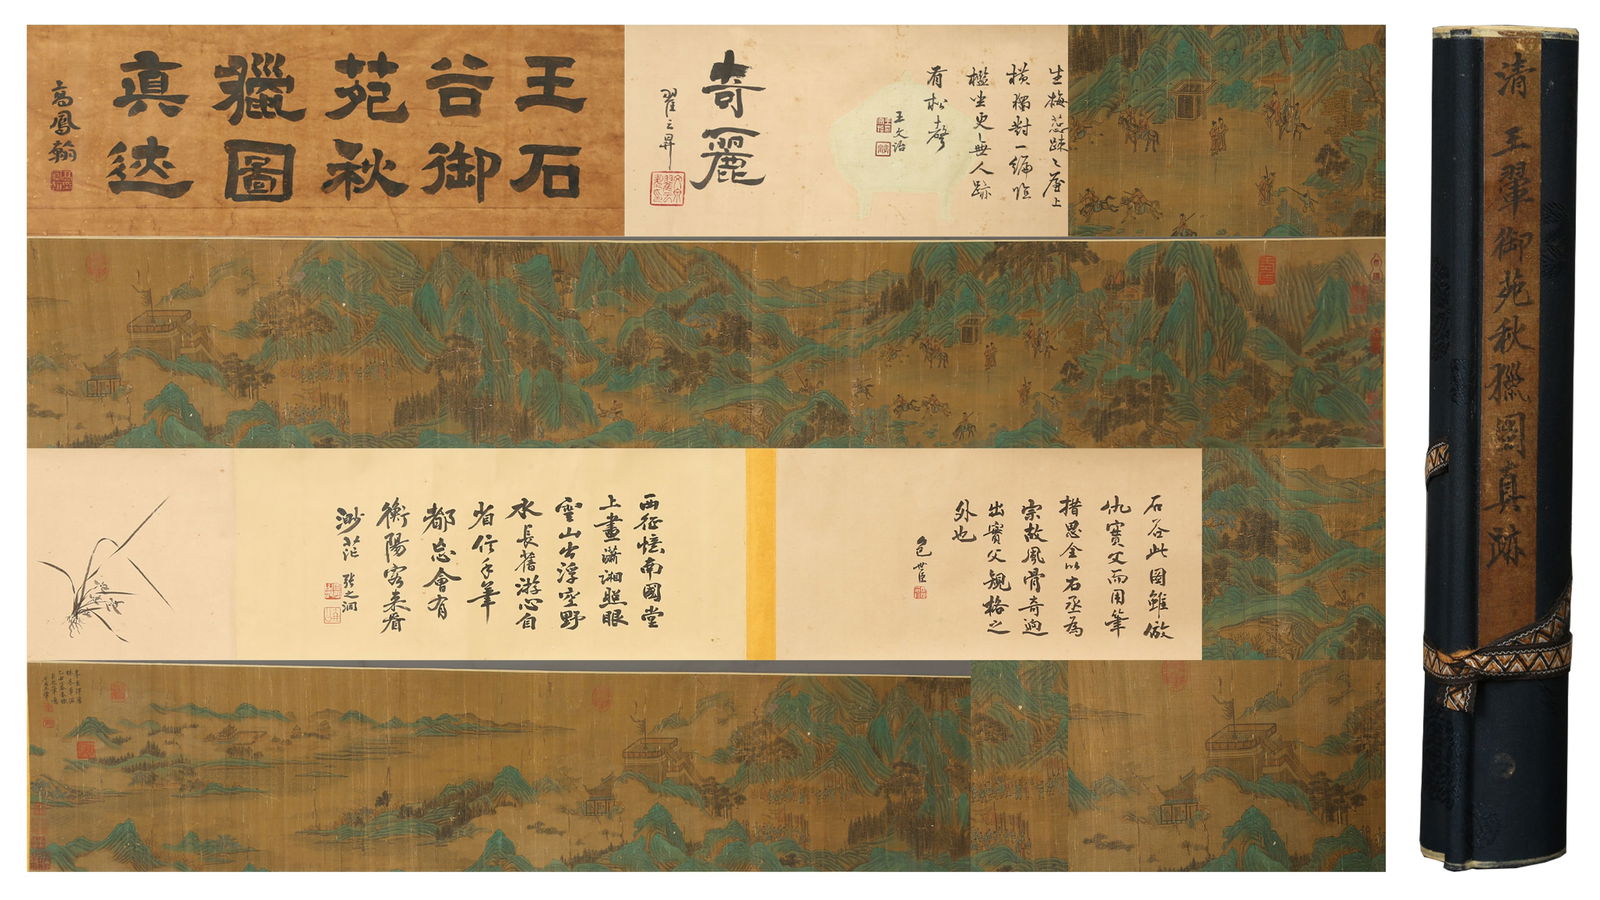 王石
谷御
苑秋
獵圖
真迹
高鳳翰
奇麗
翟云昇
生梅蕊疎之屋上
橫獨對一編臨
檻坐更無人跡
有松聲
王文治
石谷此圖雖倣
仇實父而用筆
措思全以右丞為
宗故風骨奇逈
出實父規格之
外也
包世臣
西征憶南國堂
上畫瀟湘照眼
雲山出浮空野
水長舊游心自
省信手筆
都忘會有
衡陽客來看
渺茫 張之洞
清 王翬御苑秋獵圖真跡